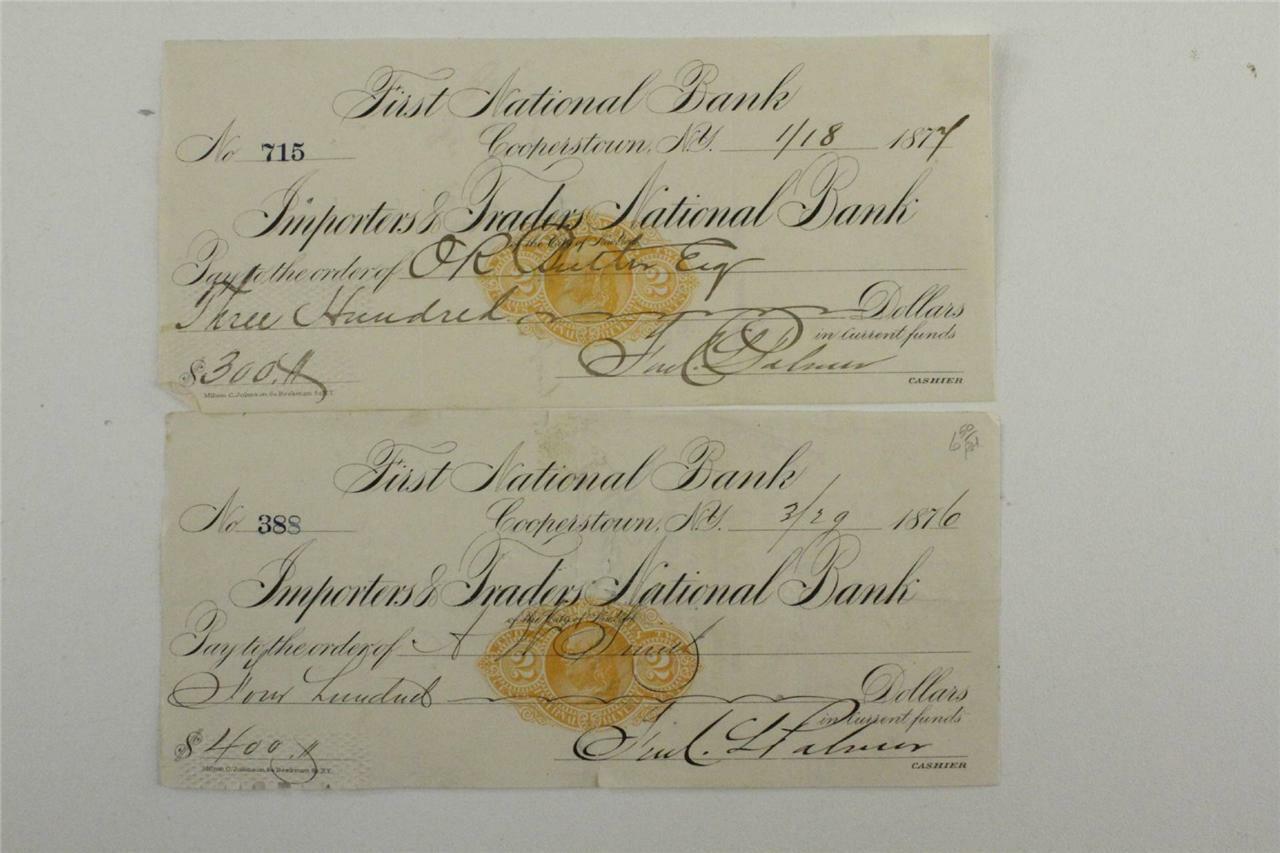 First National Bank
No 715 Cooperstown, N.Y. 1/18 1877
Importers & Traders National Bank
of the City of New York
Pay to the order of O R Butler Esq
Three Hundred Dollars
in current funds
$300.
Fred. L. Palmer
CASHIER
Milton C. Johnson, Beekman St. N.Y.
First National Bank
No 388 Cooperstown, N.Y. 3/29 1876
Importers & Traders National Bank
of the City of New York
Pay to the order of A
Four Hundred Dollars
in current funds
$400.
Fred. L. Palmer
CASHIER
Milton C. Johnson, Beekman St. N.Y.